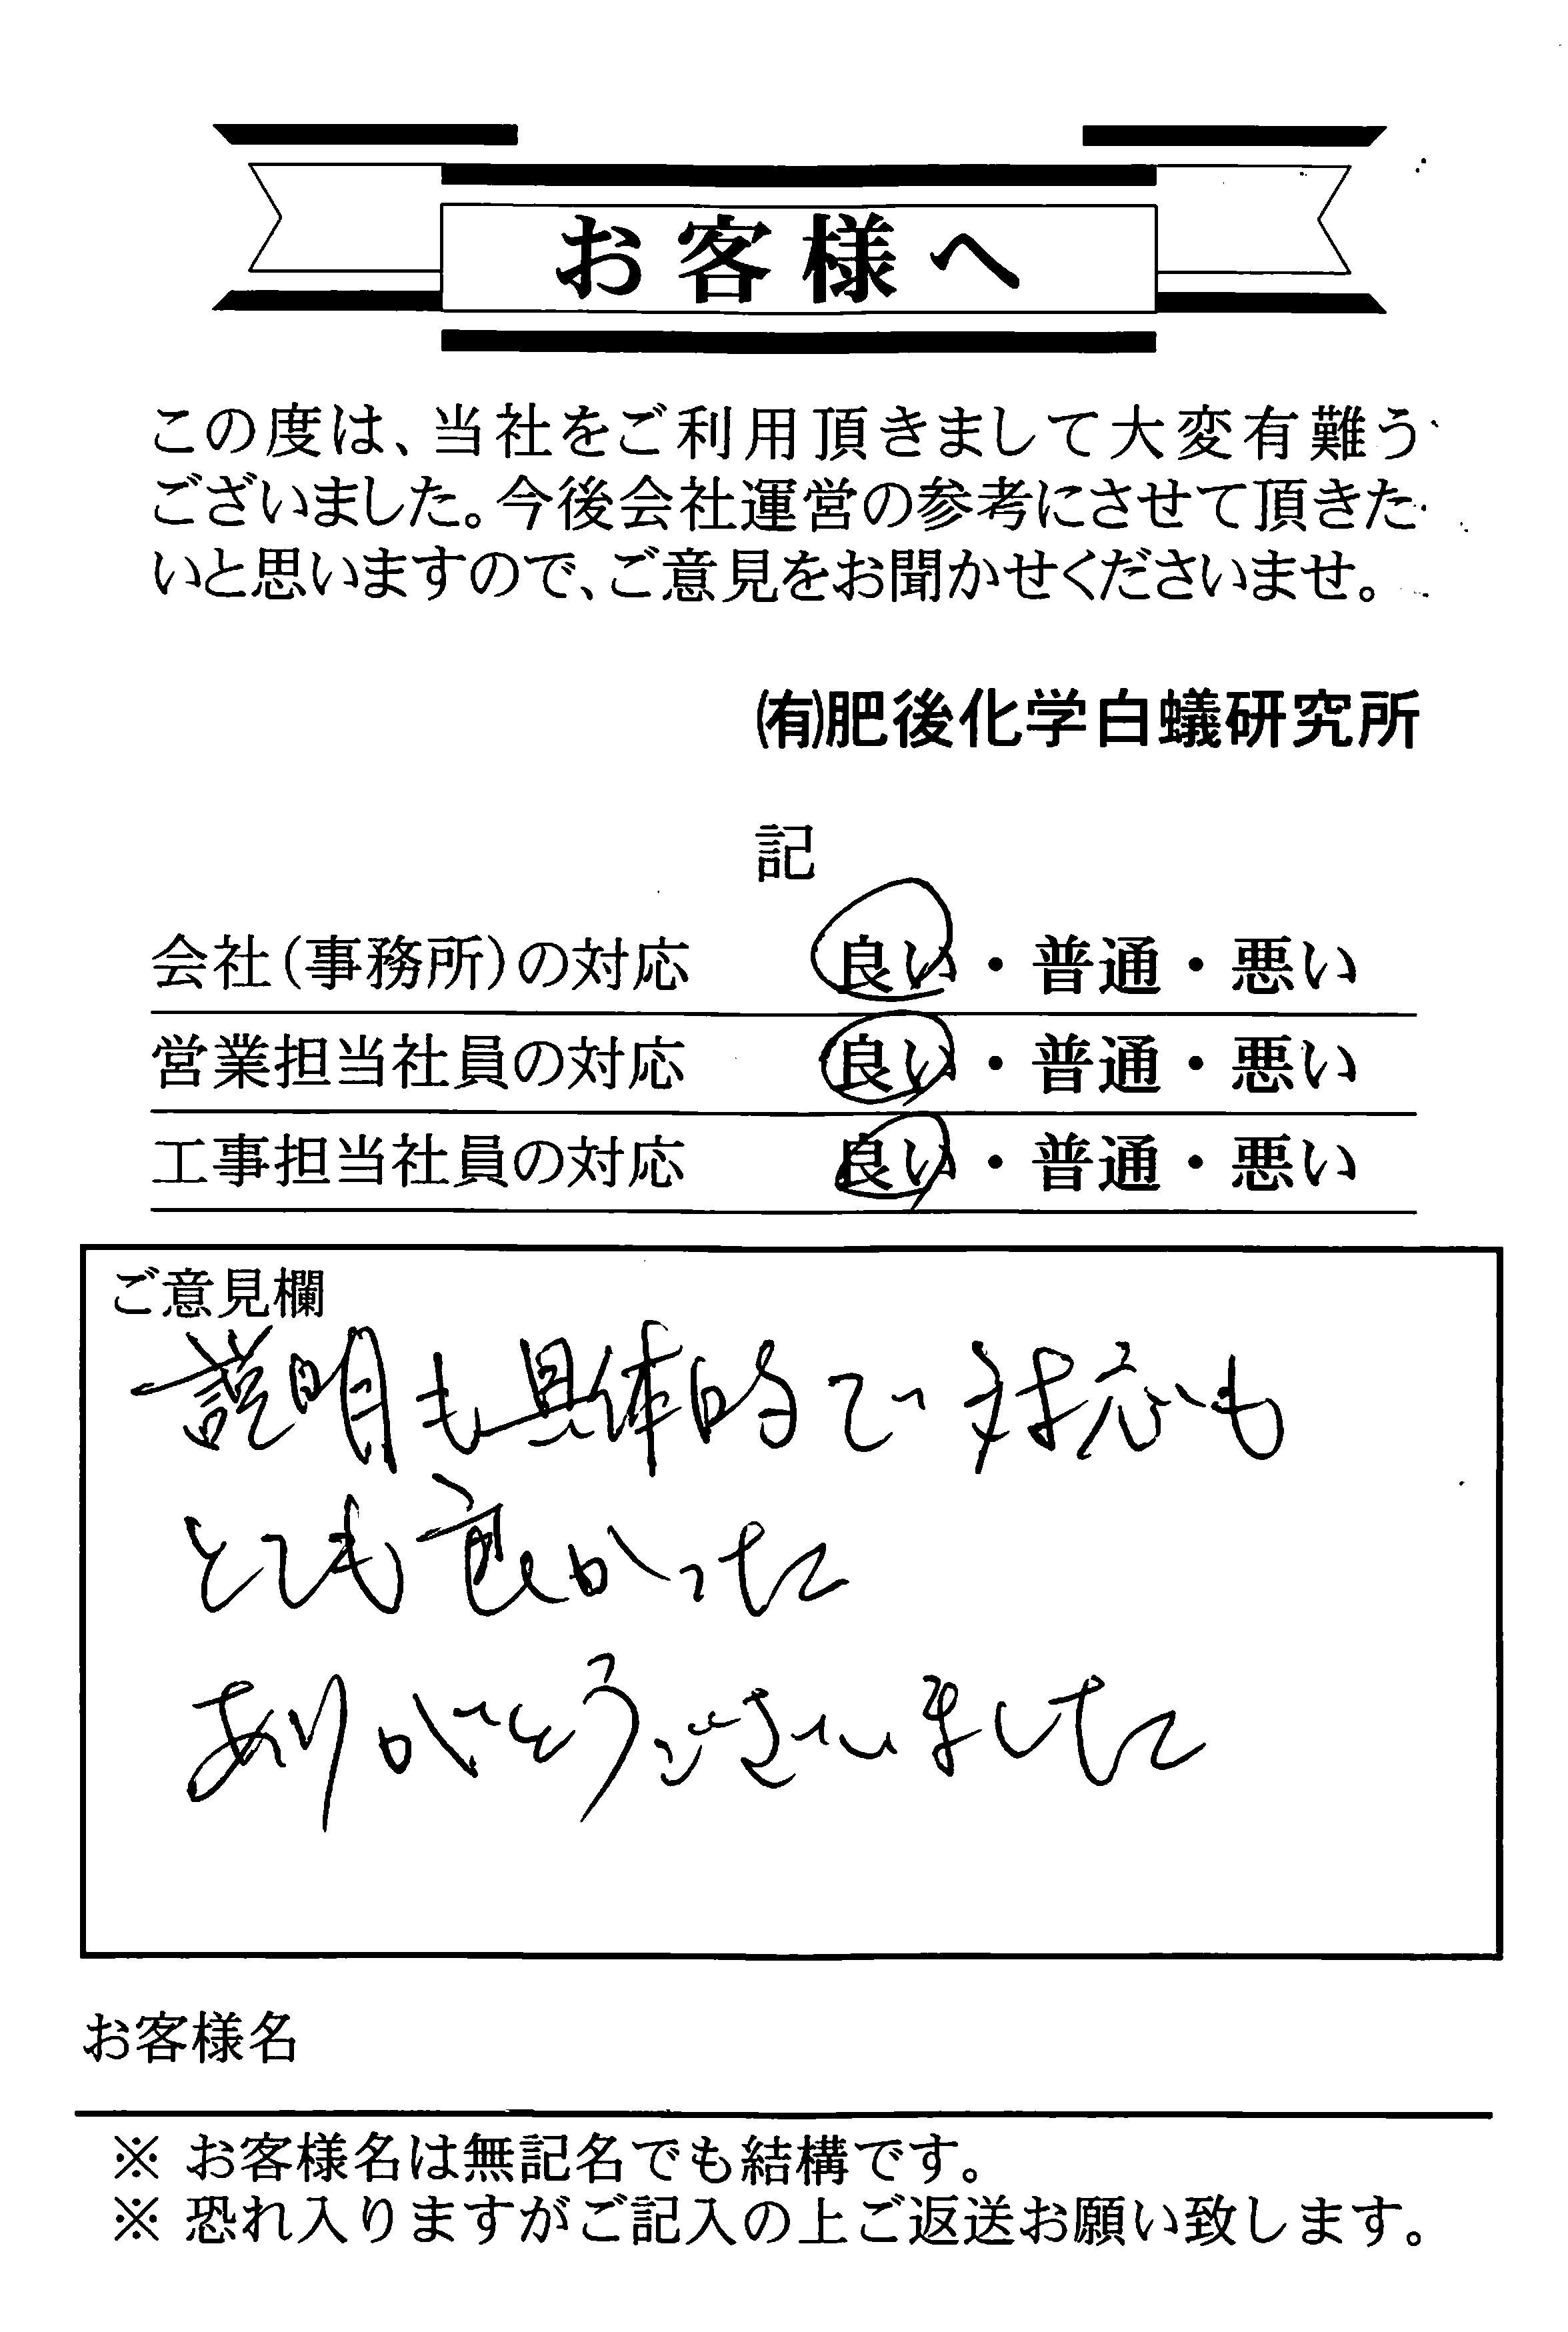 お客様へ
この度は、当社をご利用頂きまして大変有難う
ございました。今後会社運営の参考にさせて頂きた
いと思いますので、ご意見をお聞かせくださいませ。
㈲肥後化学白蟻研究所
記
会社(事務所)の対応 良い・普通・悪い
営業担当社員の対応 良い・普通・悪い
工事担当社員の対応 良い・普通・悪い
ご意見欄
説明も具体的で対応も
とても良かった
ありがとうございました
お客様名
※ お客様名は無記名でも結構です。
※ 恐れ入りますがご記入の上ご返送お願い致します。